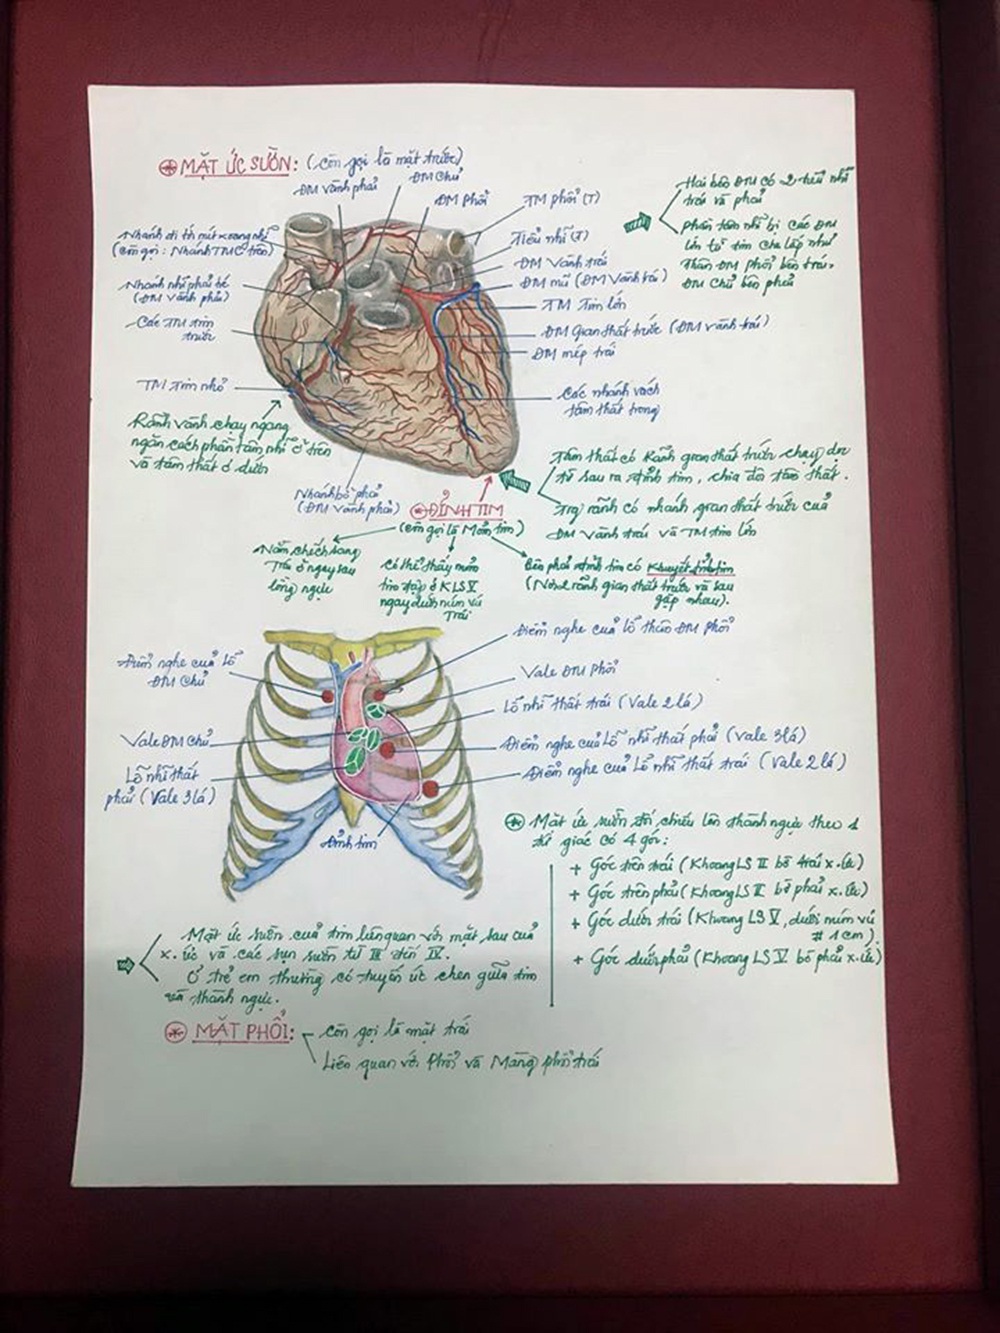 MẶT ỨC SƯỜN: (Còn gọi là mặt trước)
ĐM vành phải
ĐM Chủ
ĐM phổi
TM phổi (T)
Tiểu nhĩ (T)
ĐM Vành trái
ĐM mũ (ĐM Vành trái)
TM Tim lớn
ĐM Gian thất trước (ĐM vành trái)
ĐM mép trái
Các nhánh vách
tâm thất trong
Nhánh đi tới nút xoang nhĩ
(Còn gọi: Nhánh TMC trên)
Nhánh nhĩ phải bé
(ĐM vành phải)
Các TM tim
trước
TM tim nhỏ
Rãnh vành chạy ngang
ngăn cách phần tâm nhĩ ở trên
và tâm thất ở dưới
Nhánh bờ phải
(ĐM vành phải)
Hai bên ĐM có 2 tiểu nhĩ
trái và phải
Phần tâm nhĩ bị các ĐM
lớn từ tim che lấp như
Thân ĐM phổi bên trái.
ĐM Chủ bên phải
Tâm thất có Rãnh gian thất trước chạy dọc
từ sau ra đỉnh tim, chia đôi tâm thất.
Trg rãnh có nhánh gian thất trước của
ĐM vành trái và TM tim lớn
ĐỈNH TIM
(Còn gọi là Mỏm tim)
Nằm chếch sang
Trái ở ngay sau
lồng ngực
Có thể thấy mỏm
tim đập ở KLS V
ngay dưới núm vú
Trái
Bên phải đỉnh tim có Khuyết đỉnh tim
(Nơi 2 rãnh gian thất trước và sau
gặp nhau).
Điểm nghe của lỗ thân ĐM Phổi
Vale ĐM Phổi
Lỗ nhĩ thất trái (Vale 2 lá)
Điểm nghe của Lỗ nhĩ thất phải (Vale 3 lá)
Điểm nghe của Lỗ nhĩ thất trái (Vale 2 lá)
Điểm nghe của lỗ
ĐM Chủ
Vale ĐM chủ
Lỗ nhĩ thất
phải (Vale 3 lá)
Đỉnh tim
Mặt ức sườn đối chiếu lên thành ngực theo 1
tứ giác có 4 góc:
+ Góc trên trái (Khoang LS II bờ trái x.ức)
+ Góc trên phải (Khoang LS II bờ phải x.ức)
+ Góc dưới trái (Khoang LS V, dưới núm vú
# 1cm)
+ Góc dưới phải (Khoang LS V bờ phải x.ức)
Mặt ức sườn của tim liên quan với mặt sau của
x. ức và các sụn sườn từ III đến IV.
Ở trẻ em thường có tuyến ức chen giữa tim
và thành ngực.
MẶT PHỔI:
Còn gọi là mặt trái
Liên quan với Phổi và Màng phổi trái